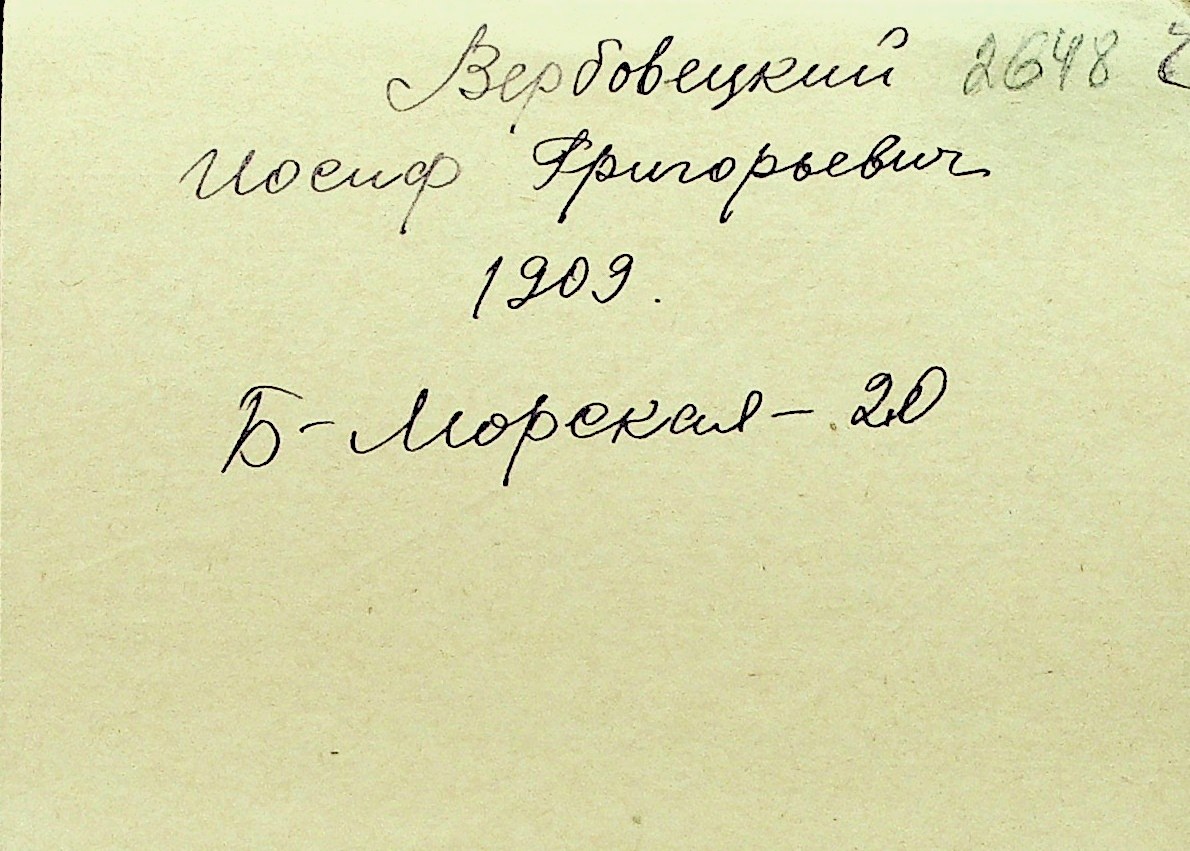 Вербовецкий 2648
Иосиф Григорьевич
1909.
Б-Морская-20